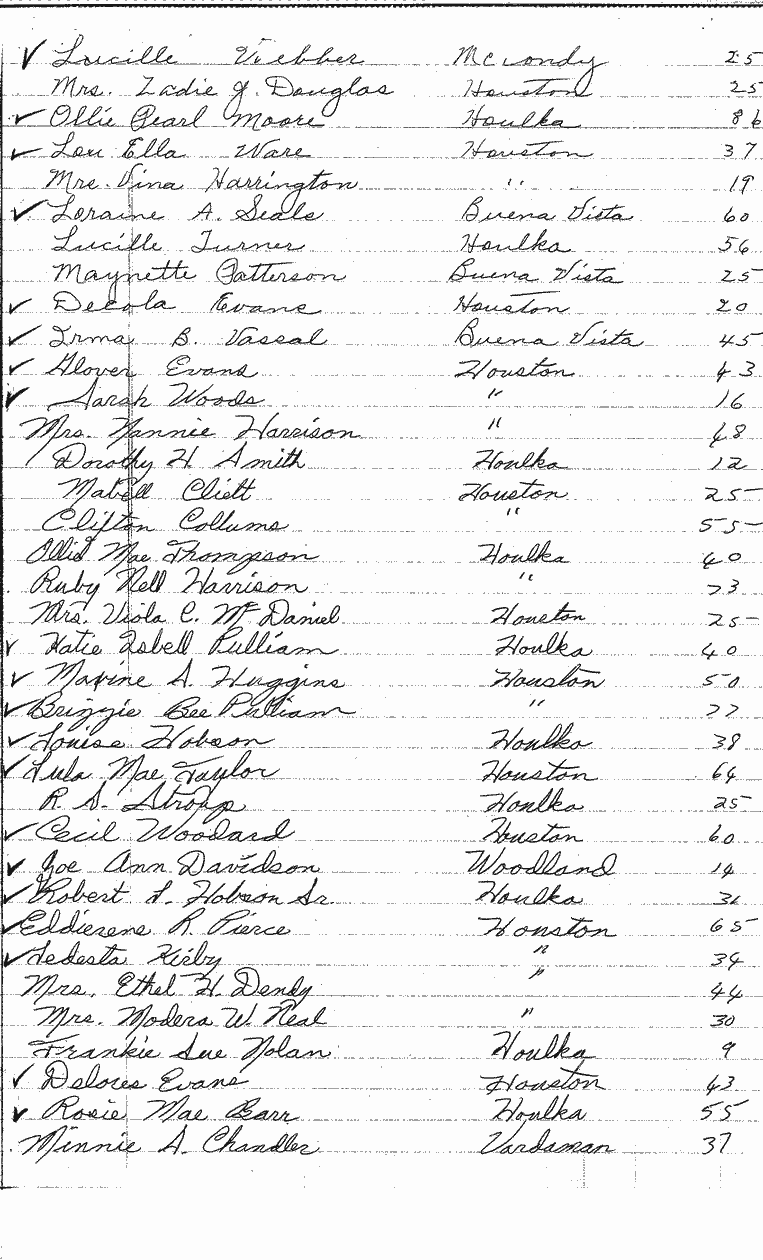 ✓ Lucille Viebber McCondy 25
Mrs. Zadie J. Douglas Houston 25
✓ Ollie Pearl Moore Houlka 86
✓ Lou Ella Ware Houston 37
Mrs. Vina Harrington " 19
✓ Loraine A. Seals Buena Vista 60
Lucille Turner Houlka 56
Maynette Patterson Buena Vista 25
✓ Decola Evans Houston 20
✓ Irma B. Vassal Buena Vista 45
✓ Glover Evans Houston 43
✓ Sarah Woods " 16
Mrs. Nannie Harrison " 68
Dorothy H. Smith Houlka 12
Mabell Cliett Houston 25
Clifton Collums " 55
Ollie Mae Thompson Houlka 40
Ruby Nell Harrison " 73
Mrs. Viola C. McDaniel Houston 25
✓ Katie Isbell Pulliam Houlka 40
✓ Maxine A. Huggins Houston 50
✓ Brizzie Bee Pulliam " 77
✓ Louise Hobson Houlka 38
✓ Lula Mae Taylor Houston 64
R. S. Stroup Houlka 25
✓ Cecil Woodard Houston 60
✓ Zoe Ann Davidson Woodland 14
✓ Robert L. Hobson Sr. Houlka
✓ Eddierene R. Pierce Houston 65
✓ Tedesta Kirby " 34
Mrs. Ethel H. Dendy " 44
Mrs. Modera W. Neal " 30
Frankie Sue Nolan Houlka 9
✓ Delores Evans Houston 43
✓ Rosie Mae Barr Houlka 55
Minnie A. Chandler Vardaman 37